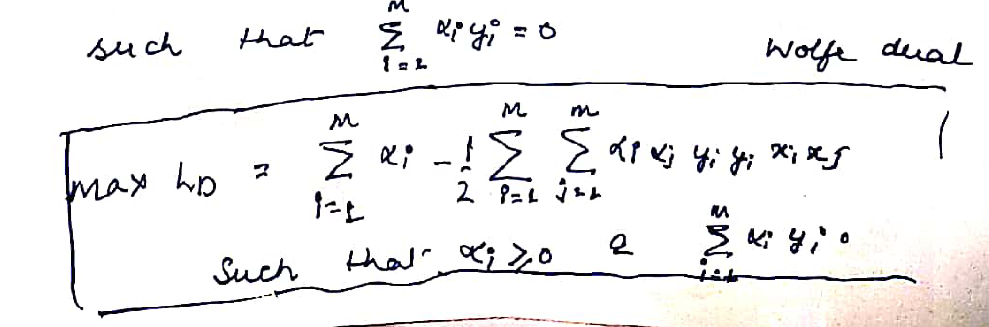 such that M Σ i=1 αi yi = 0
Wolfe dual
max LD = M Σ i=1 αi - 1/2 M Σ i=1 m Σ j=1 αi αj yi yi xi xj
Such that αi ≥ 0 & M Σ i=1 αi yi 0